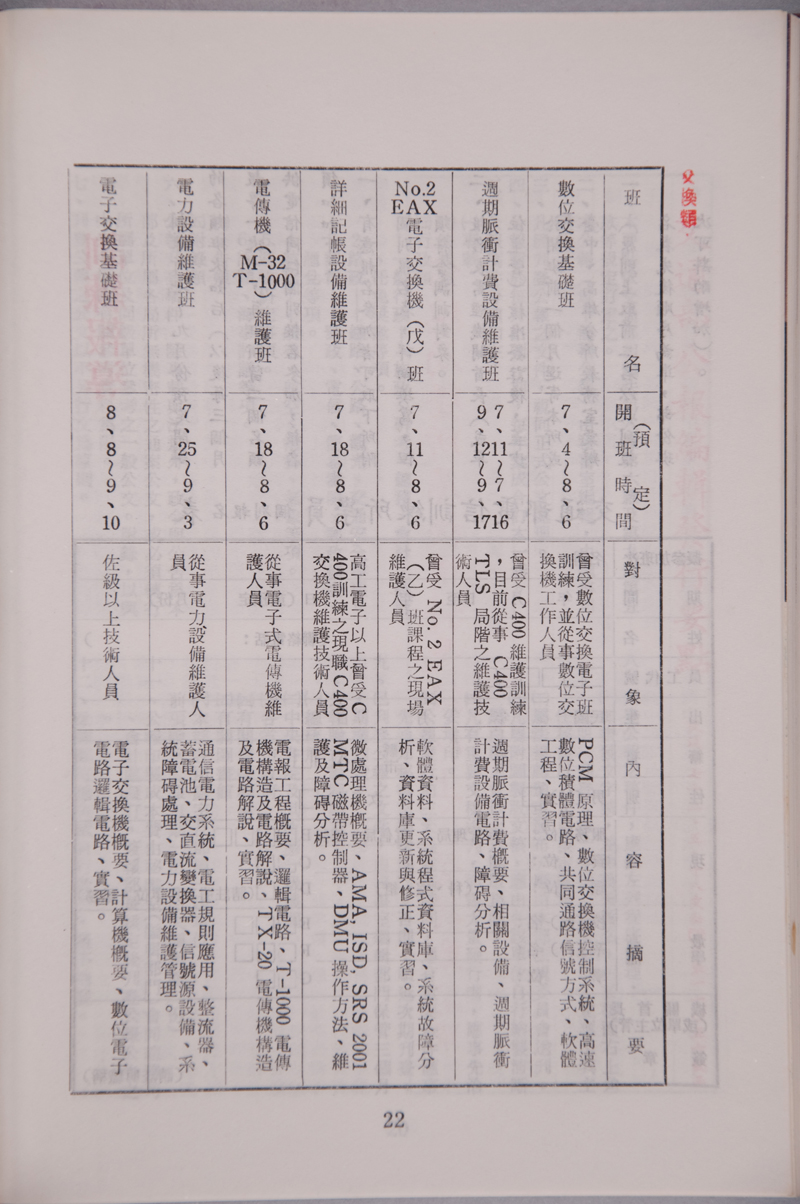 交換類
班名
(預定)
開班時間
對象
內容摘要
數位交換基礎班
7、4~8、6
曾受數位交換電子班
訓練,並從事數位交
換機工作人員
PCM 原理、數位交換機控制系統、高速
數位積體電路、共同通路信號方式、軟體
工程、實習。
週期脈衝計費設備維護班
7、11~7、16
9、12~9、17
曾受 C400 維護訓練
,目前從事 C400
TLS 局階之維護技
術人員
週期脈衝計費概要、相關設備、週期脈衝
計費設備電路、障碍分析。
No.2 EAX 電子交換機(戊)班
7、11~8、6
曾受 No. 2 EAX
(乙)班課程之現場
維護人員
軟體資料、系統程式資料庫、系統故障分
析、資料庫更新與修正、實習。
詳細記帳設備維護班
7、18~8、6
高工電子以上曾受C
400訓練之現職C400
交換機維護技術人員
微處理機概要、AMA, ISD, SRS 2001
MTC 磁帶控制器、DMU 操作方法、維
護及障碍分析。
電傳機(M-32 T-1000)維護班
7、18~8、6
從事電子式電傳機維
護人員
電報工程概要、邏輯電路、T-1000 電傳
機構造及電路解說、TX-20 電傳機構造
及電路解說、實習。
電力設備維護班
7、25~9、3
從事電力設備維護人
員
通信電力系統、電工規則應用、整流器、
蓄電池、交直流變換器、信號源設備、系
統障碍處理、電力設備維護管理。
電子交換基礎班
8、8~9、10
佐級以上技術人員
電子交換機概要、計算機概要、數位電子
電路邏輯電路、實習。
22